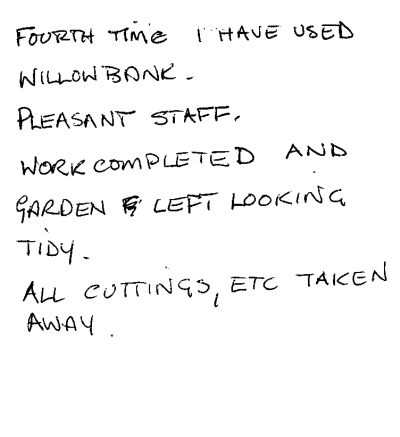 FOURTH TIME I HAVE USED
WILLOWBANK.
PLEASANT STAFF.
WORK COMPLETED AND
GARDEN LEFT LOOKING
TIDY.
ALL CUTTINGS, ETC TAKEN
AWAY.